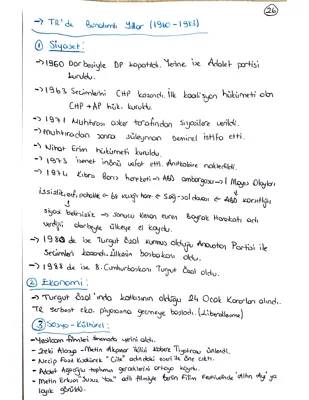 26
→ TR'de Bunalımlı Yıllar (1960-1983)
① Siyaset:
→ 1960 Darbesiyle DP kapatıldı. Yerine ise Adalet partisi
kuruldu.
→ 1963 Secimlerini CHP kazandı. İlk koalisyon hükümeti olan
CHP + AP hük. kuruldu.
→ 1971 Muhtırası asker tarafından siyasilere verildi.
→ muhtıradan sonra süleyman demirel istifa etti.
→ Nihat Erim hükümeti kuruldu.
→ 1973 ismet inönü vefat etti. Anıtkabire nakledildi.
→ 1974 Kıbrıs Barış harekatı → ABD ambargosu → 1 Mayıs Olayları
issizlik, pahalılık ← Sağ-sol davası ← ABD karşıtlığı
siyasi belirsizlik → sonucu Kenan evren Bayrak Harekatı adı
verdiği darbeyle ülkeye el koydu.
→ 1983 de ise Turgut Özal kurmus olduğu Anavatan Partisi ile
Secimleri kazandı. Ülkenin başbakanı oldu.
→ 1988 de ise 8. Cumhurbaskanı Turgut Özal oldu.
② Ekonomi:
→ Turgut Özal'ında katkısının olduğu 24 Ocak Kararları alındı.
TR serbest eko. piyasasına geçmeye basladı. (Liberalleşme)
③ Sosyo-Kültürel:
- Yesilcam filmleri sinemada yerini aldı.
- Zeki Alasya - Metin Akpınar ikilisi kabere Tiyatrosu ünlendi.
- Necip Fazıl Kısakürek "Çile" adındaki eseri ile öne cıktı.
- Adalet Ağaoğlu toplumun gerçeklerini ortaya koydu.
- Metin Erksan Susuz Yaz" adlı filmiyle Berlin Film Festivalinde "Altın Ayı" ya
layık görüldü.